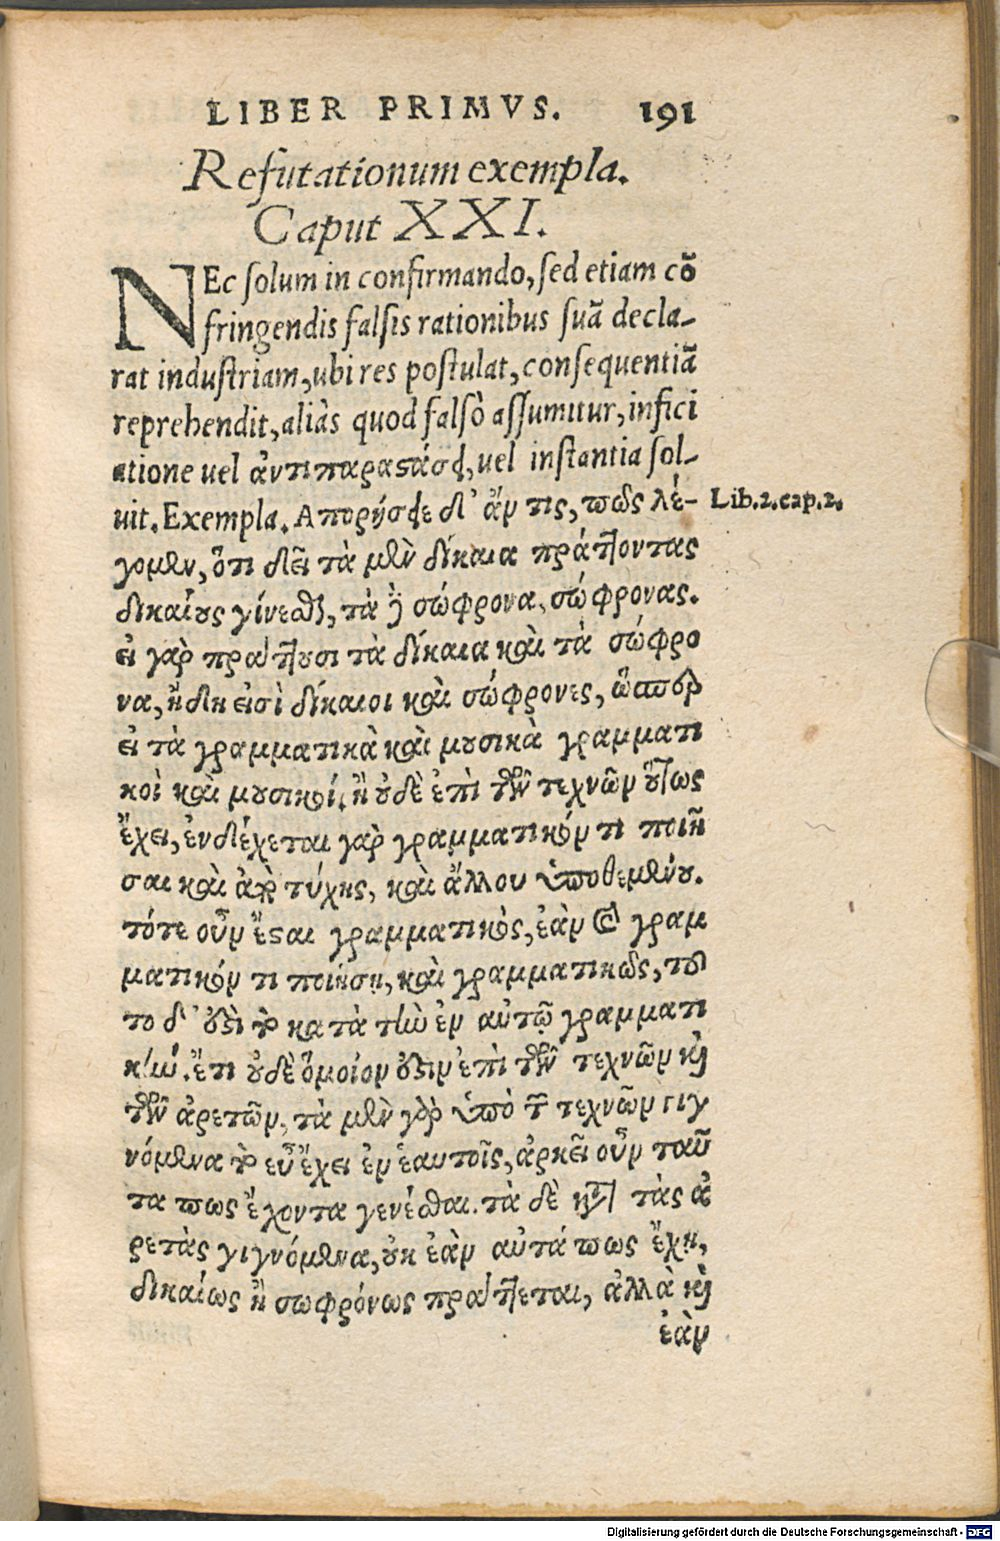 LIBER PRIMVS. 191
Refutationum exempla.
Caput XXI.
NEc solum in confirmando, sed etiam cō
fringendis falsis rationibus suā decla-
rat industriam, ubi res postulat, consequentiā
reprehendit, aliàs quod falsò assumitur, infici
atione uel ἀντιπαραϛάσει, uel instantia sol-
uit. Exempla. Απορήσειε δ' ἄν τις, πῶς λέ-
Lib.2.cap.2.
γομεν, ὅτι δεῖ τὰ μὲν δίκαια πράττοντας
δικαίους γίνεσθαι, τὰ δὲ σώφρονα, σώφρονας.
εἰ γὰρ πράττουσι τὰ δίκαια καὶ τὰ σώφρο
να, ἤδη εἰσὶ δίκαιοι καὶ σώφρονες, ὥσπερ
εἰ τὰ γραμματικὰ καὶ μουσικὰ γραμματι
κοὶ καὶ μουσικοί. ἢ οὐδὲ ἐπὶ τῶν τεχνῶν οὕτως
ἔχει, ἐνδέχεται γὰρ γραμματικόν τι ποιῆ
σαι καὶ ἀπὸ τύχης, καὶ ἄλλου ὑποθεμένου.
τότε οὖν ἔϛαι γραμματικὸς, ἐὰν καὶ γραμ
ματικόν τι ποιήσῃ, καὶ γραμματικῶς, τοῦ
το δ' ἐϛὶ τὸ κατὰ τὴν ἐν αὑτῷ γραμματι
κήν. ἔτι οὐδὲ ὅμοιόν ἐϛιν ἐπὶ τῶν τεχνῶν καὶ
τῶν ἀρετῶν, τὰ μὲν γὰρ ὑπὸ τῶν τεχνῶν γιγ
νόμενα τὸ εὖ ἔχει ἐν ἑαυτοῖς, ἀρκεῖ οὖν ταῦ
τα πως ἔχοντα γενέσθαι. τὰ δὲ κατὰ τὰς ἀ
ρετὰς γιγνόμενα, οὐκ ἐὰν αὐτά πως ἔχῃ,
δικαίως ἢ σωφρόνως πράττεται, ἀλλὰ καὶ
ἐὰν
Digitalisierung gefördert durch die Deutsche Forschungsgemeinschaft - DFG